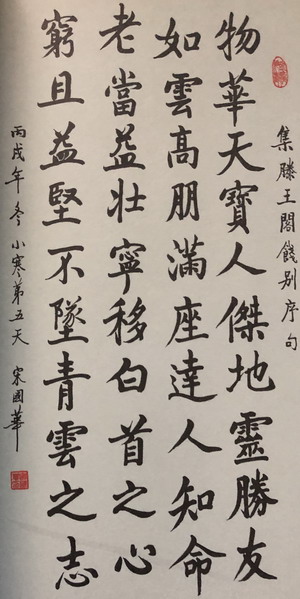 集滕王閣餞別序句
物華天寶人傑地靈勝友
如雲高朋滿座達人知命
老當益壯寧移白首之心
窮且益堅不墜青雲之志
丙戌年冬小寒第五天 宋國華